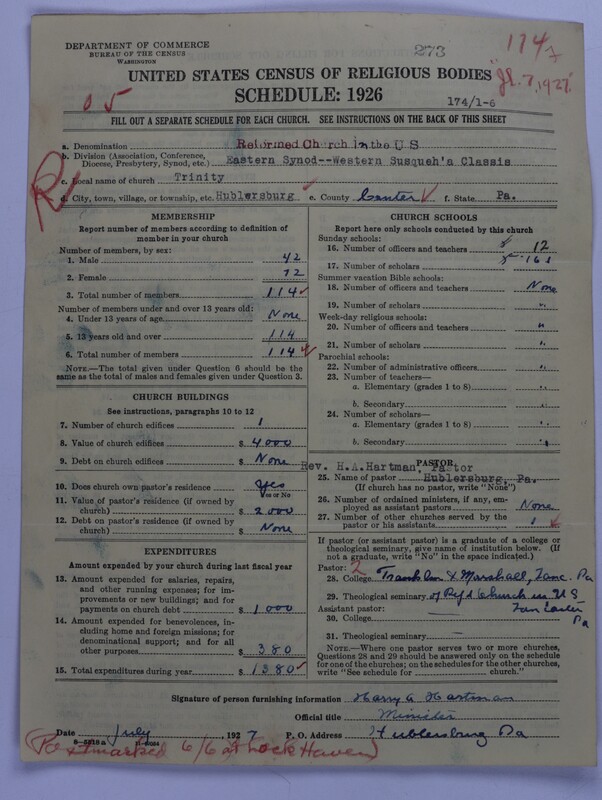 DEPARTMENT OF COMMERCE
BUREAU OF THE CENSUS
WASHINGTON
273
114
UNITED STATES CENSUS OF RELIGIOUS BODIES
Jl. 7, 1927.
SCHEDULE: 1926
05
174/1-6
FILL OUT A SEPARATE SCHEDULE FOR EACH CHURCH. SEE INSTRUCTIONS ON THE BACK OF THIS SHEET
R
a. Denomination Reformed Church in the U S
b. Division (Association, Conference, Diocese, Presbytery, Synod, etc.) Eastern Synod--Western Susqueh'a Classis
c. Local name of church Trinity
d. City, town, village, or township, etc. Hublersburg e. County Center f. State Pa.
MEMBERSHIP
Report number of members according to definition of
member in your church
Number of members, by sex:
1. Male 42
2. Female 72
3. Total number of members 114
Number of members under and over 13 years old:
4. Under 13 years of age None
5. 13 years old and over 114
6. Total number of members 114
NOTE.—The total given under Question 6 should be
same as the total of males and females given under Question 3.
CHURCH BUILDINGS
See instructions, paragraphs 10 to 12
7. Number of church edifices 1
8. Value of church edifices $ 4000
9. Debt on church edifices $ None
10. Does church own pastor's residence Yes
Yes or No
11. Value of pastor's residence (if owned by
church) $ 2000
12. Debt on pastor's residence (if owned by
church) $ None
EXPENDITURES
Amount expended by your church during last fiscal year
13. Amount expended for salaries, repairs,
and other running expenses; for im-
provements or new buildings; and for
payments on church debt $ 1000
14. Amount expended for benevolences, in-
cluding home and foreign missions; for
denominational support; and for all
other purposes $ 380
15. Total expenditures during year $ 1380
CHURCH SCHOOLS
Report here only schools conducted by this church
Sunday schools:
16. Number of officers and teachers 12
17. Number of scholars 161
Summer vacation Bible schools:
18. Number of officers and teachers None
19. Number of scholars "
Week-day religious schools:
20. Number of officers and teachers "
21. Number of scholars "
Parochial schools:
22. Number of administrative officers "
23. Number of teachers—
a. Elementary (grades 1 to 8) "
b. Secondary "
24. Number of scholars—
a. Elementary (grades 1 to 8) "
b. Secondary "
PASTOR
Rev. H.A.Hartman, Pastor
25. Name of pastor Hublersburg, Pa.
(If church has no pastor, write "None")
26. Number of ordained ministers, if any, em-
ployed as assistant pastors None
27. Number of other churches served by the
pastor or his assistants 1
If pastor (or assistant pastor) is a graduate of a college or
theological seminary, give name of institution below. (If
not a graduate, write "No" in the space indicated.)
Pastor: 2
28. College Franklin & Marshall, Lanc. Pa
29. Theological seminary of Ref'd Church in U S
Assistant pastor: Lancaster
30. College Pa
31. Theological seminary
NOTE.—Where one pastor serves two or more churches,
Questions 28 and 29 should be answered only on the schedule
for one of the churches; on the schedules for the other churches,
write "See schedule for church."
Signature of person furnishing information Harry A Hartman
Official title Minister
Date July , 1927 P. O. Address Hublersburg Pa
(Postmarked 6/6 at Lock Haven)